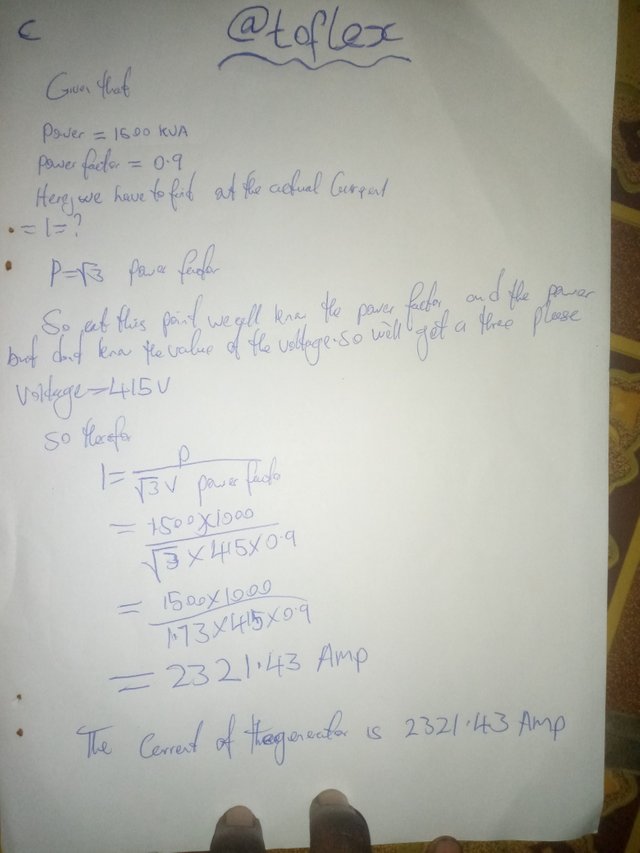 C
@toflex
Given that
Power = 1500 KVA
Power factor = 0.9
Here, we have to find out the actual Current
= I = ?
P = √3 power factor
So at this point we all know the power factor and the power
but don't know the value of the voltage. So we'll get a three please
Voltage = 415V
So therefor
I = P / √3 V power factor
= 1500 X 1000 / √3 X 415 X 0.9
= 1500 X 1000 / 1.73 X 415 X 0.9
= 2321.43 Amp
The Current of the generator is 2321.43 Amp